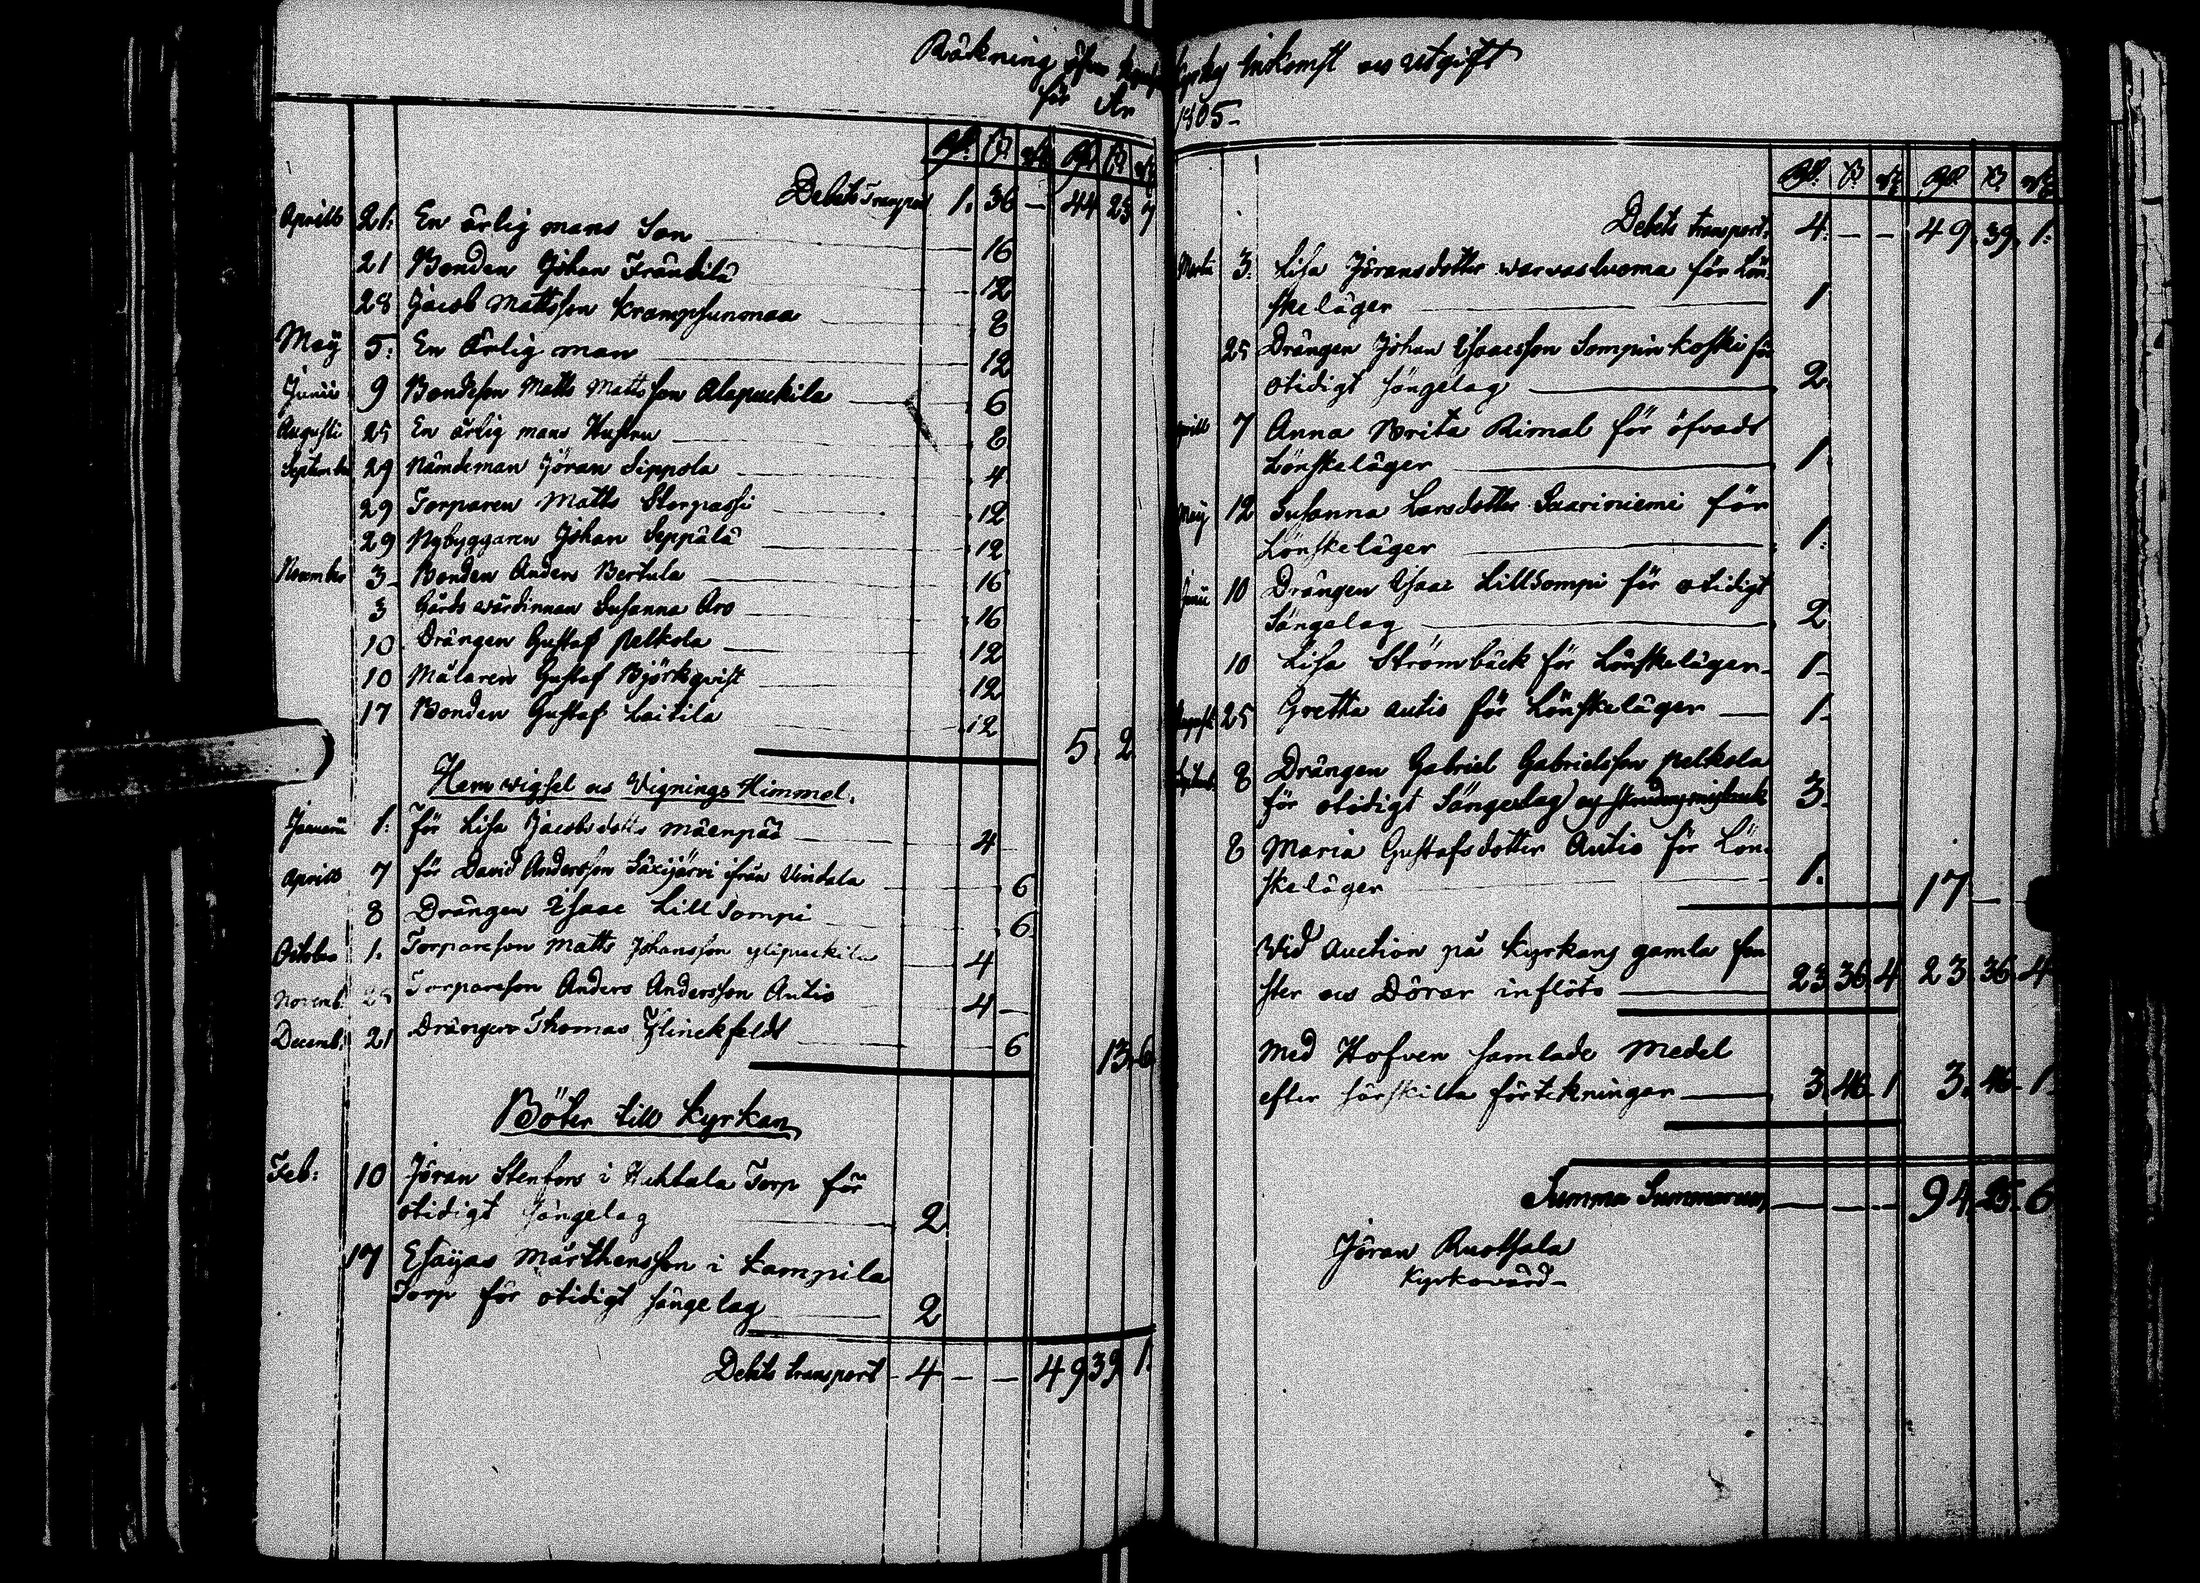 Räkning öfver kyrkos Inkomst och Utgift
för År 1805-
Rd. ß. rst. Rd. ß. rst.
Debets Transport 1. 36 - 44 23 7
Aprill 21. En ärlig mans Son 16
21 Bonden Johan Frändilä 12
28 Jacob Mattsson Krampsunmaa 8
May 5. En Ärlig man 12
Junii 9 Bondeson Matts Mattsson Alapuckila 6
Augusti 25 En ärlig mans Hustru 8
September 29 Nämdeman Jöran Sippola 4
29 Torparen Matts Storpassi 12
29 Nybyggaren Johan Seppälä 12
Novemb. 3 Bonden Anders Bertula 16
3 Gårds wärdinnan Susanna Aro 16
10 Drängen Gustaf Pelkola 12
10 Målaren Gustaf Björkqvist 12
17 Bonden Gustaf Laitila 12 5. 2
Hem wigsel och Vignings Himmel.
Januarii 1. För Lisa Jacobsdotter mäenpää 4
Aprill 7 för David Andersson Säxijärvi ifrån Vindala 6
8 Drängen Isaac Lillsompi 6.
October 1. Torpareson Matts Johansson ylipuckila 4
Novemb. 25 Torpareson Anders Andersson Autio 4 -
Decemb. 21 Drängen Thomas Flinckfeldt 6 13. 6
Böter till kyrkan
Feb: 10 Jöran Stenfors i Huhtala Torp för
otidigt sängelag 2
17 Esaijas Mårthensson i Kampila
Torp för otidigt sängelag 2
Debets transport - 4 - - 49 39 1.
Rd. ß. rst. Rd. ß. rst.
Debets transport. 4. - - 49. 39. 1.
Martii 3. Lisa Jöransdotter warvastuoma för Lön-
skeläger 1
25 Drängen Johan Isaacsson Sompinkoski för
otidigt sängelag 2.
Aprill 7 Anna Brita Rimal för öfvadt
Lönskeläger 1.
May 12 Susanna Larsdotter Saariniemi för
Lönskeläger 1.
Junii 10 Drängen Isaac Lillsompi för otidigt
Sängelag 2
10 Lisa Strömbäck för Lönskeläger 1-
Augusti 25 Gretta Autio för Lönskeläger 1-
Septemb. 8 Drängen Gabriel Gabrielsson Pelkola
för otidigt Sängelag 3.
8 Maria Gustafsdotter Autio för Lön-
skeläger 1. 17 -
Vid Auction på kyrkans gamla fen-
ster och Dörar inflöto 23 36. 4 23. 36. 4
Med Hofven samlade Medel
efter särskilta förtekningar 3. 46. 1 3. 46- 1-
Summa Summarum - - - 94. 25. 6
Jöran Ruotsala
Kyrkovärd-